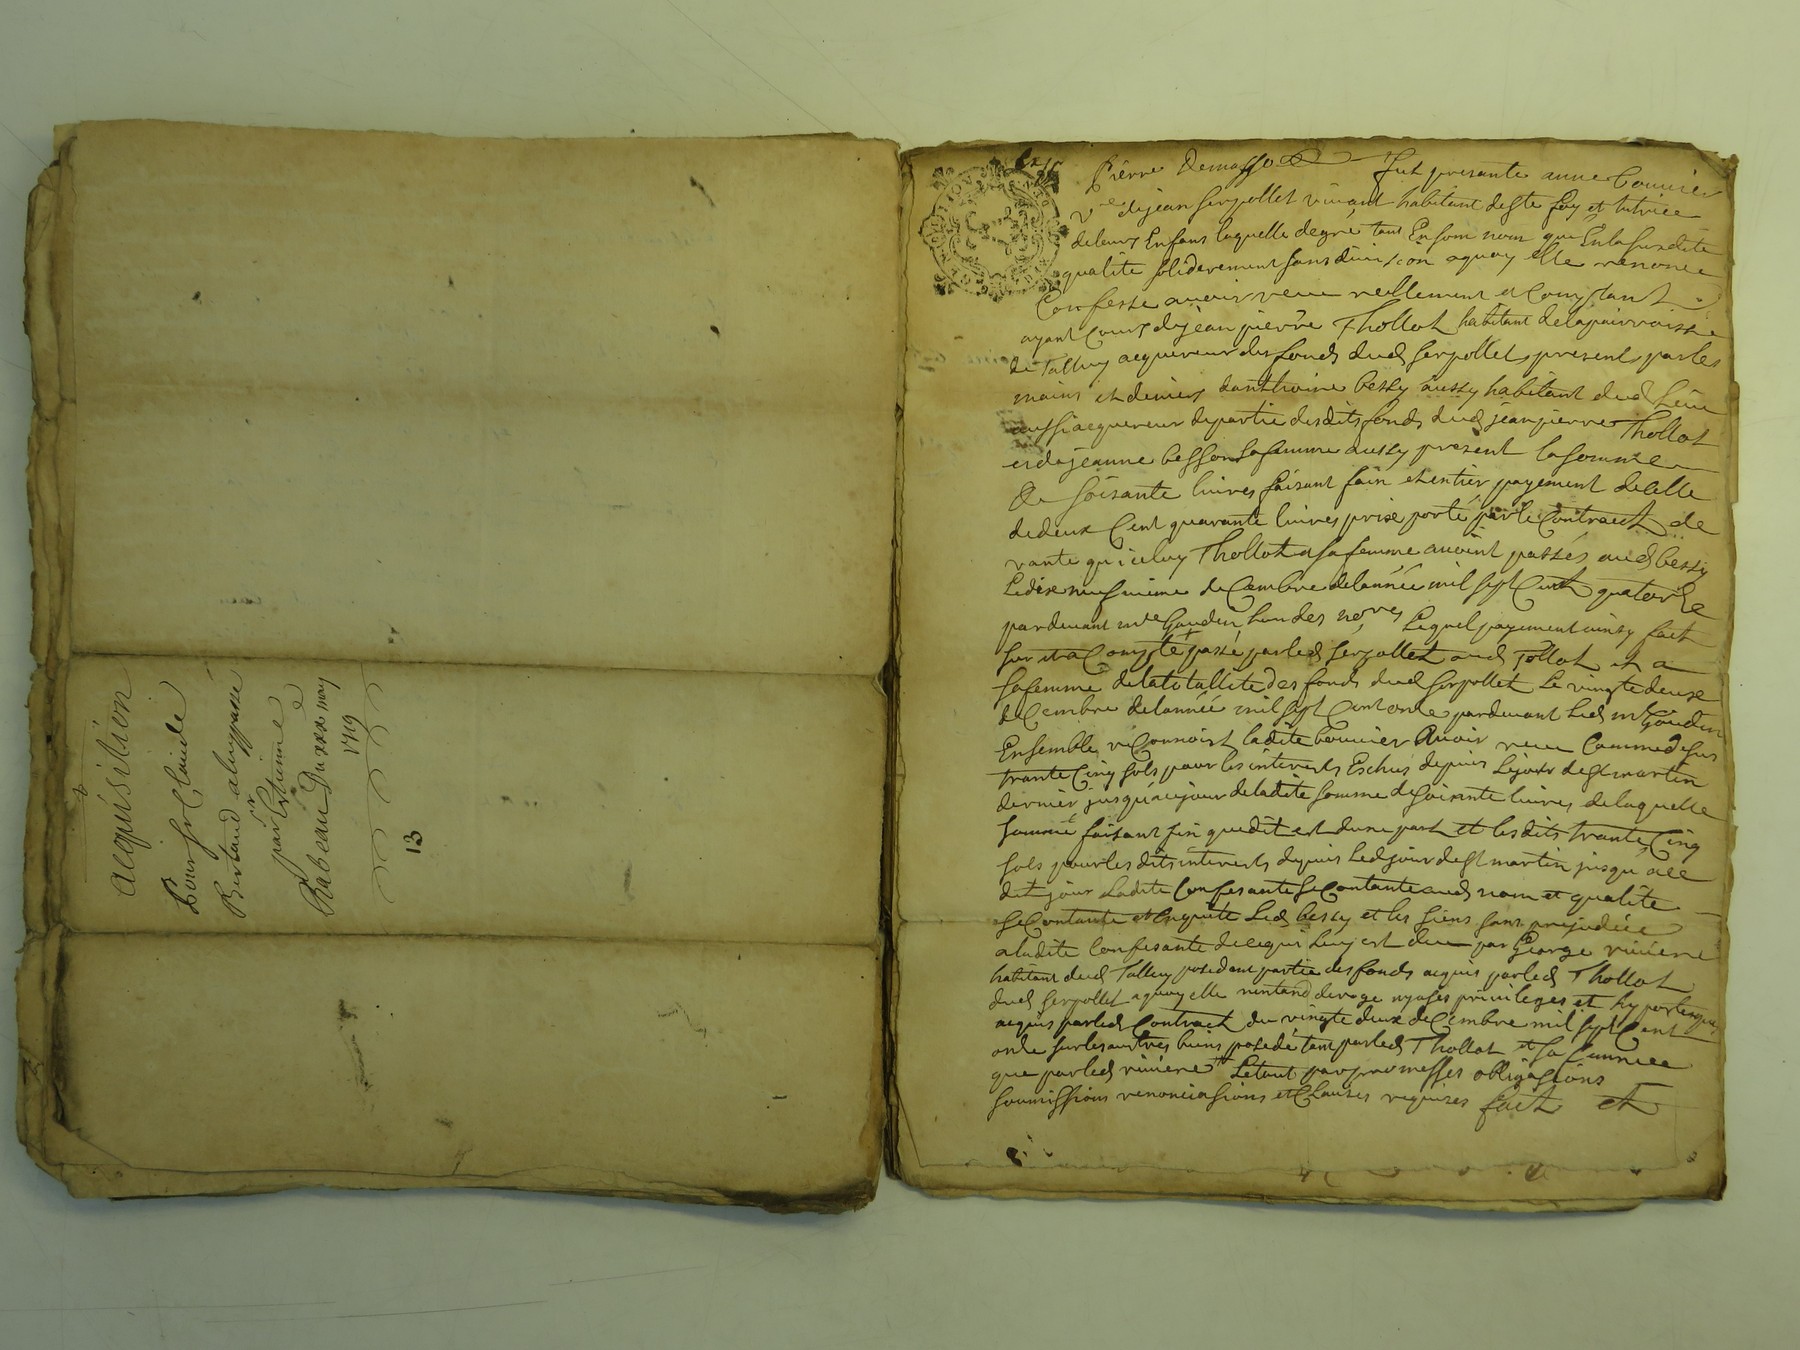 acquisition
Pour Sr Claude
Bertaud a luy passé
par Sr Estienne
Chabeau Du xxxe may
1719
13
Pierre Demasso Fut presante anne bouvier
Ve de jean serpollet vivant habitant de Ste foy et tutrice
de leurs Enfans laquelle de gré tant En son nom que En la susdite
qualité soliderement sans division aquoy elle renonce
Confesse avoir receu reellement et Comptant
ayant Cours de jean pierre Thollot habitant de la parroisse
de Talluy acquereur des fonds dud serpollet present par les
mains et deniers danthoine bessy aussy habitant dud Lieu
aussi acquereur de partie desdits fonds dud jean pierre Thollot
et de jeanne besson sa femme aussy present la somme
de soisante livres faisant fain et entier payement de celle
de deux Cent quarante livres prise porté par le Contract de
vante que iceluy Thollot et sa femme avoint passés aud bessy
Le dixe neufvieme deCembre de lannée mil sept Cent quatorze
par devant me Gaudin Lun des nores Lequel payement ainsy fait
sur et a Compte passé par led serpollet aud Tollot et a
sa femme de la totallité des fonds dud serpollet Le vingte deuxe
deCembre de lannée mil sept Cent onze par devant led me Gaudin
Ensemble reConnoist ladite bouvier avoir receu Comme dessus
trante Cinq sols pour les interests Eschus depuis Le jour de St martin
dernier jusqu'au jour de ladite somme de soisante livres de laquelle
somme faisant fin que dit est dune part et les dits trante Cinq
sols pour les dits interests depuis led jour de St martin jusqu'a ce
dit jour Ladite Confesante se Contante aud nom et qualité
se Contante et En quitte Led bessy et les siens sans prejudice
a ladite Confesante de ce qui luy est deu par George riviere
habitant dud Talluy posedant partie des fonds acquis par led Thollot
dud serpollet aquoy elle nentand deroge ny a ses privileges et hypoteques
acquis par led Contract du vingte deux deCembre mil sept Cent
onze sur les autres biens posedé tant par led Thollot et sa femme
que par led riviere Letout par promesses obligasions
soumissions renonciasions et Clauses requises fait et